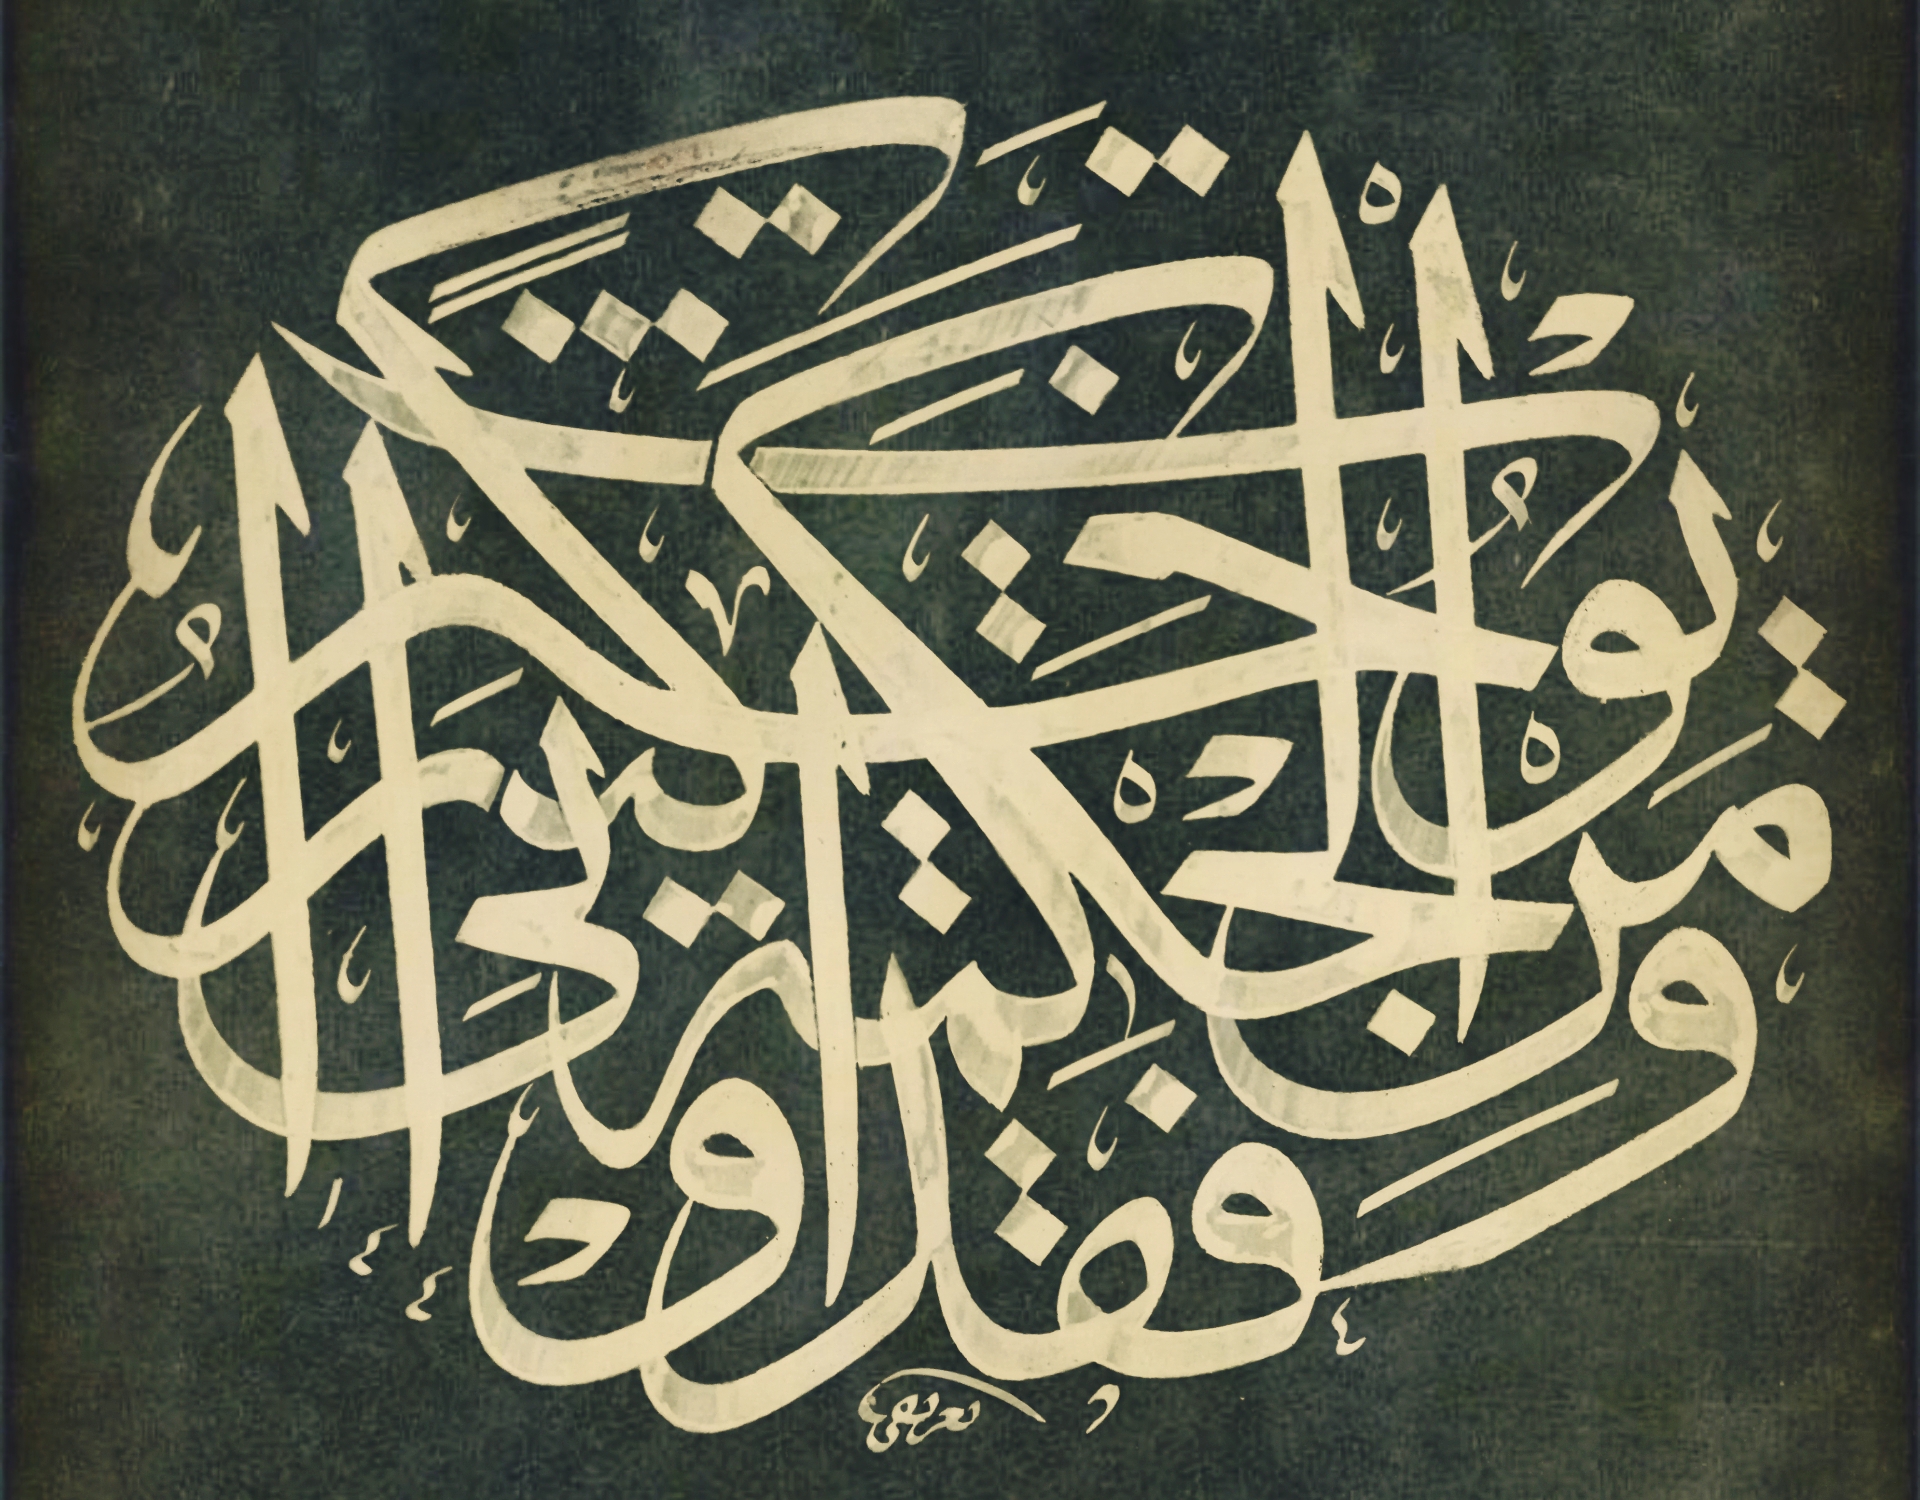 ومن يؤت الحكمة فقد أوتي خيرا كثيرا